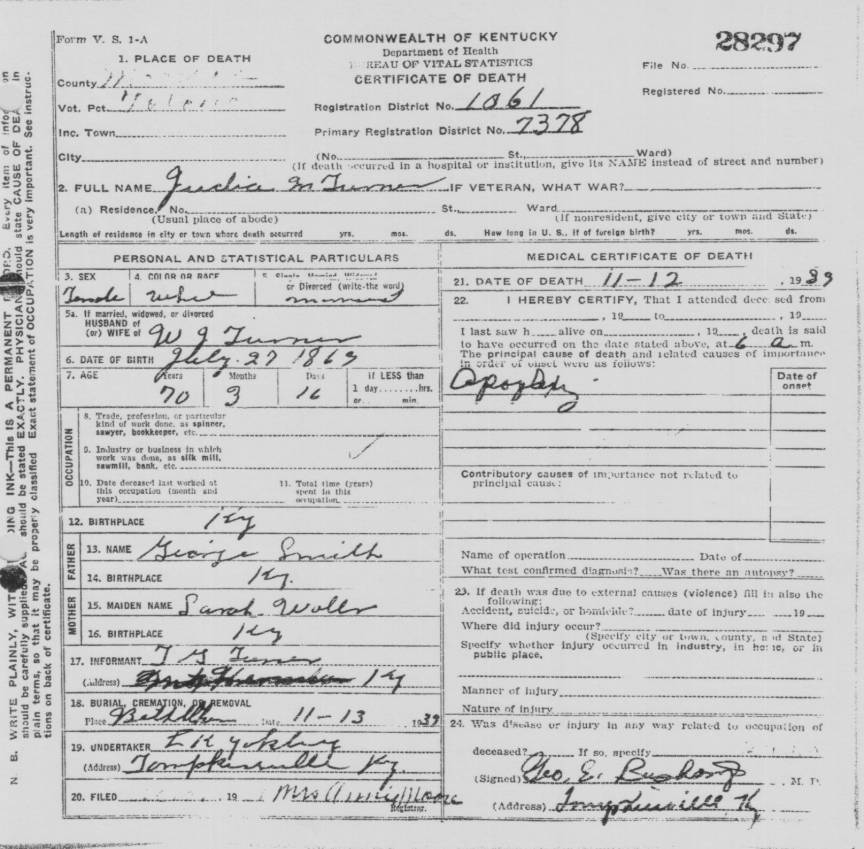 Form V. S. 1-A
COMMONWEALTH OF KENTUCKY
Department of Health
REAU OF VITAL STATISTICS
CERTIFICATE OF DEATH
28297
File No.
Registered No.
1. PLACE OF DEATH
County
Vot. Pct.
Inc. Town
City
Registration District No. 1061
Primary Registration District No. 7378
(No. St., Ward)
(If death occurred in a hospital or institution, give its NAME instead of street and number)
2. FULL NAME Judia M Turner IF VETERAN, WHAT WAR?
(a) Residence. No. St., Ward
(Usual place of abode) (If nonresident, give city or town and State)
Length of residence in city or town where death occurred yrs. mos. ds. How long in U. S., if of foreign birth? yrs. mos. ds.
PERSONAL AND STATISTICAL PARTICULARS
3. SEX 4. COLOR OR RACE 5. Single, Married, Widowed
or Divorced (write the word)
Female white married
5a. If married, widowed, or divorced
HUSBAND of
(or) WIFE of W J Turner
6. DATE OF BIRTH July 27 1869
7. AGE Years Months Days If LESS than
70 3 16 1 day hrs.
or min.
OCCUPATION
8. Trade, profession, or particular
kind of work done, as spinner,
sawyer, bookkeeper, etc.
9. Industry or business in which
work was done, as silk mill,
sawmill, bank, etc.
10. Date deceased last worked at
this occupation (month and
year)
11. Total time (years)
spent in this
occupation
12. BIRTHPLACE Ky
FATHER
13. NAME George Smith
14. BIRTHPLACE Ky.
MOTHER
15. MAIDEN NAME Sarah
16. BIRTHPLACE Ky
17. INFORMANT Turner
(Address) Ky
18. BURIAL, CREMATION, OR REMOVAL
Place Date 11-13 1939
19. UNDERTAKER
(Address) Tompkinsville Ky.
20. FILED 19 Mrs Annie Moore
Registrar.
MEDICAL CERTIFICATE OF DEATH
21. DATE OF DEATH 11-12, 1939
22. I HEREBY CERTIFY, That I attended deceased from
, 19 to , 19
I last saw h alive on , 19 , death is said
to have occurred on the date stated above, at 6 a m.
The principal cause of death and related causes of importance
in order of onset were as follows:
Date of
onset
Apoplexy
Contributory causes of importance not related to
principal cause:
Name of operation Date of
What test confirmed diagnosis? Was there an autopsy?
23. If death was due to external causes (violence) fill in also the
following:
Accident, suicide, or homicide? date of injury 19
Where did injury occur?
(Specify city or town, county, and State)
Specify whether injury occurred in industry, in home, or in
public place.
Manner of injury
Nature of injury
24. Was disease or injury in any way related to occupation of
deceased? If so, specify
(Signed) Geo. E. Bushong M. D.
(Address) Tompkinsville Ky
N. B. WRITE PLAINLY, WIT DING INK—This is A PERMANENT RD. Every item of infor on
should be carefully supplied. should be stated EXACTLY. PHYSICIAN should state CAUSE OF DEA in
plain terms, so that it may be properly classified. Exact statement of OCCUPATION is very important. See instruc-
tions on back of certificate.